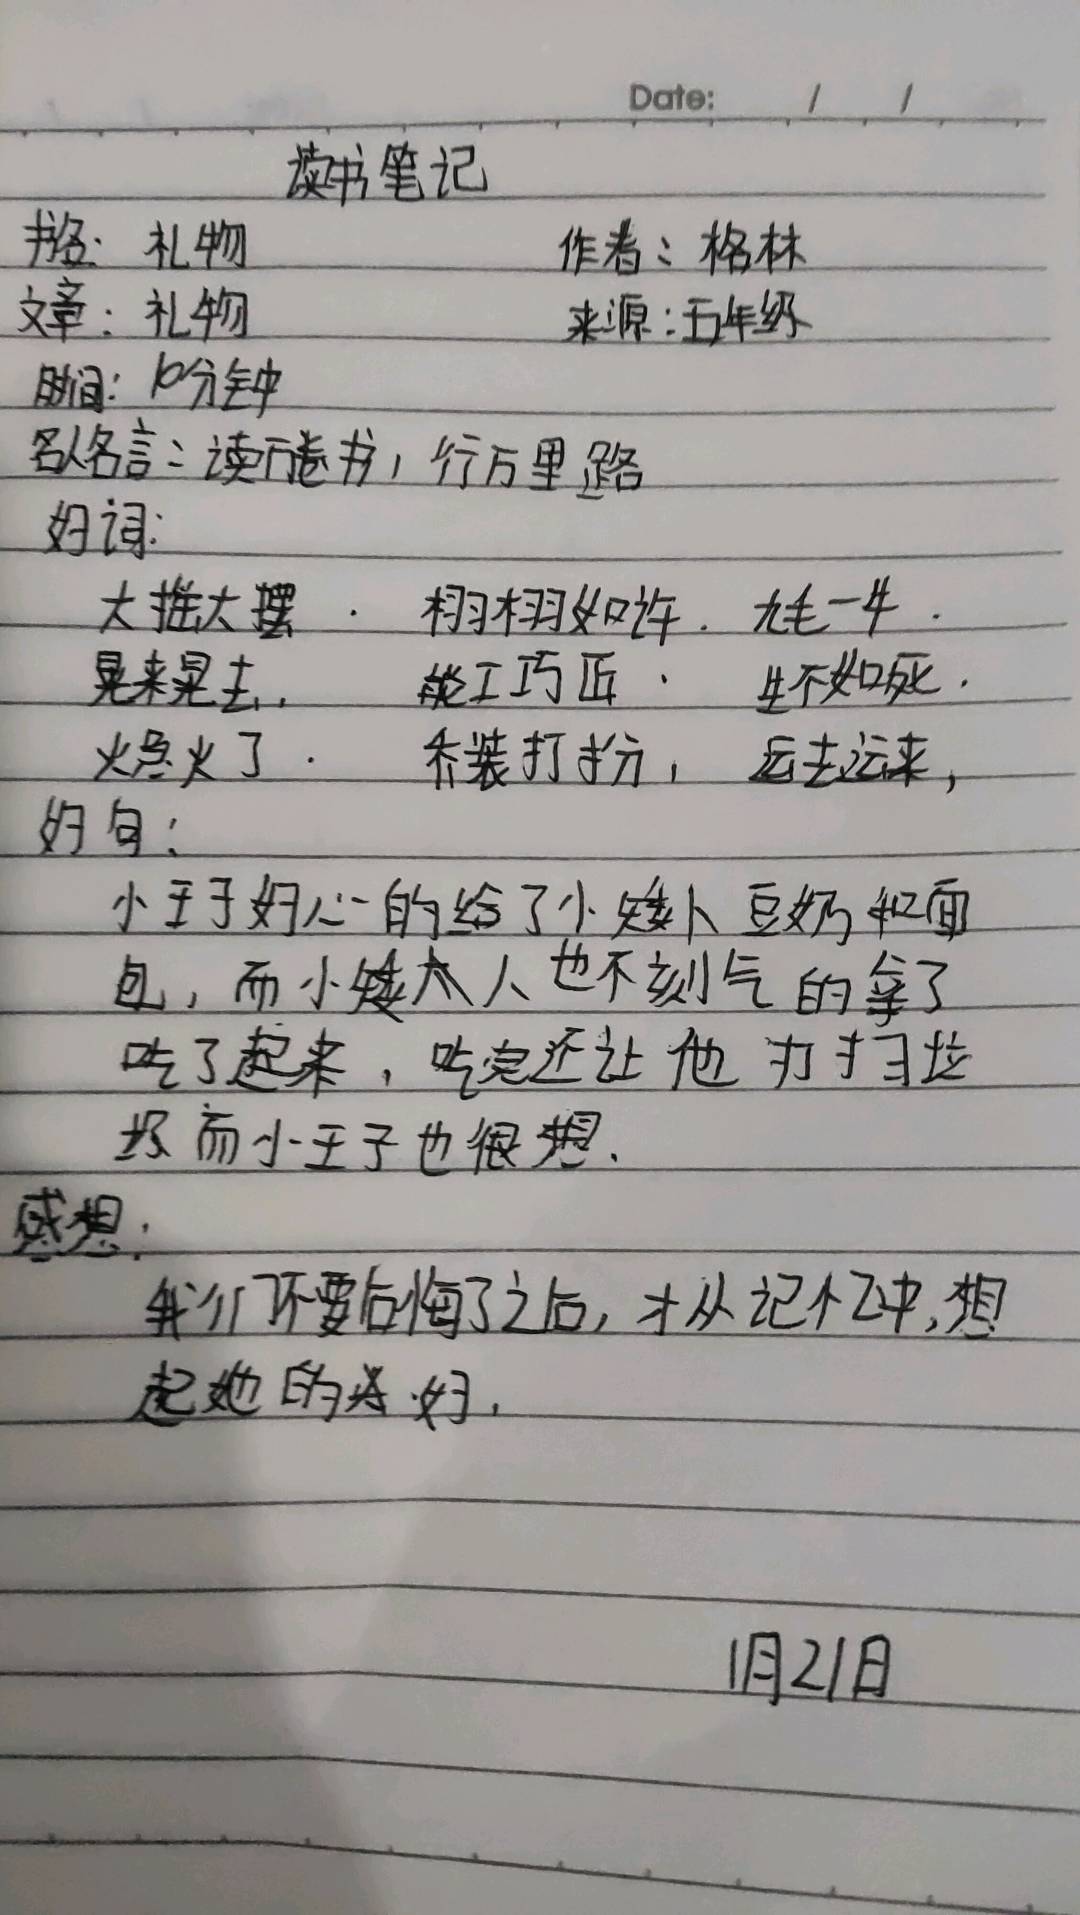 Date: / /
读书笔记
书名: 礼物 作者: 格林
文章: 礼物 来源: 五年级
时间: 10分钟
名人名言: 读万卷书, 行万里路
好词:
大摇大摆. 栩栩如许. 九毛一牛.
晃来晃去. 能工巧匠. 生不如死.
火急火了. 乔装打扮, 运去运来,
好句:
小王子好心的给了小矮人豆奶和面
包, 而小矮人也不刻气的拿了
吃了起来, 吃完还让他打扫垃
圾而小王子也很想.
感想:
我们不要后悔了之后, 才从记忆中, 想
起她的美好.
1月21日